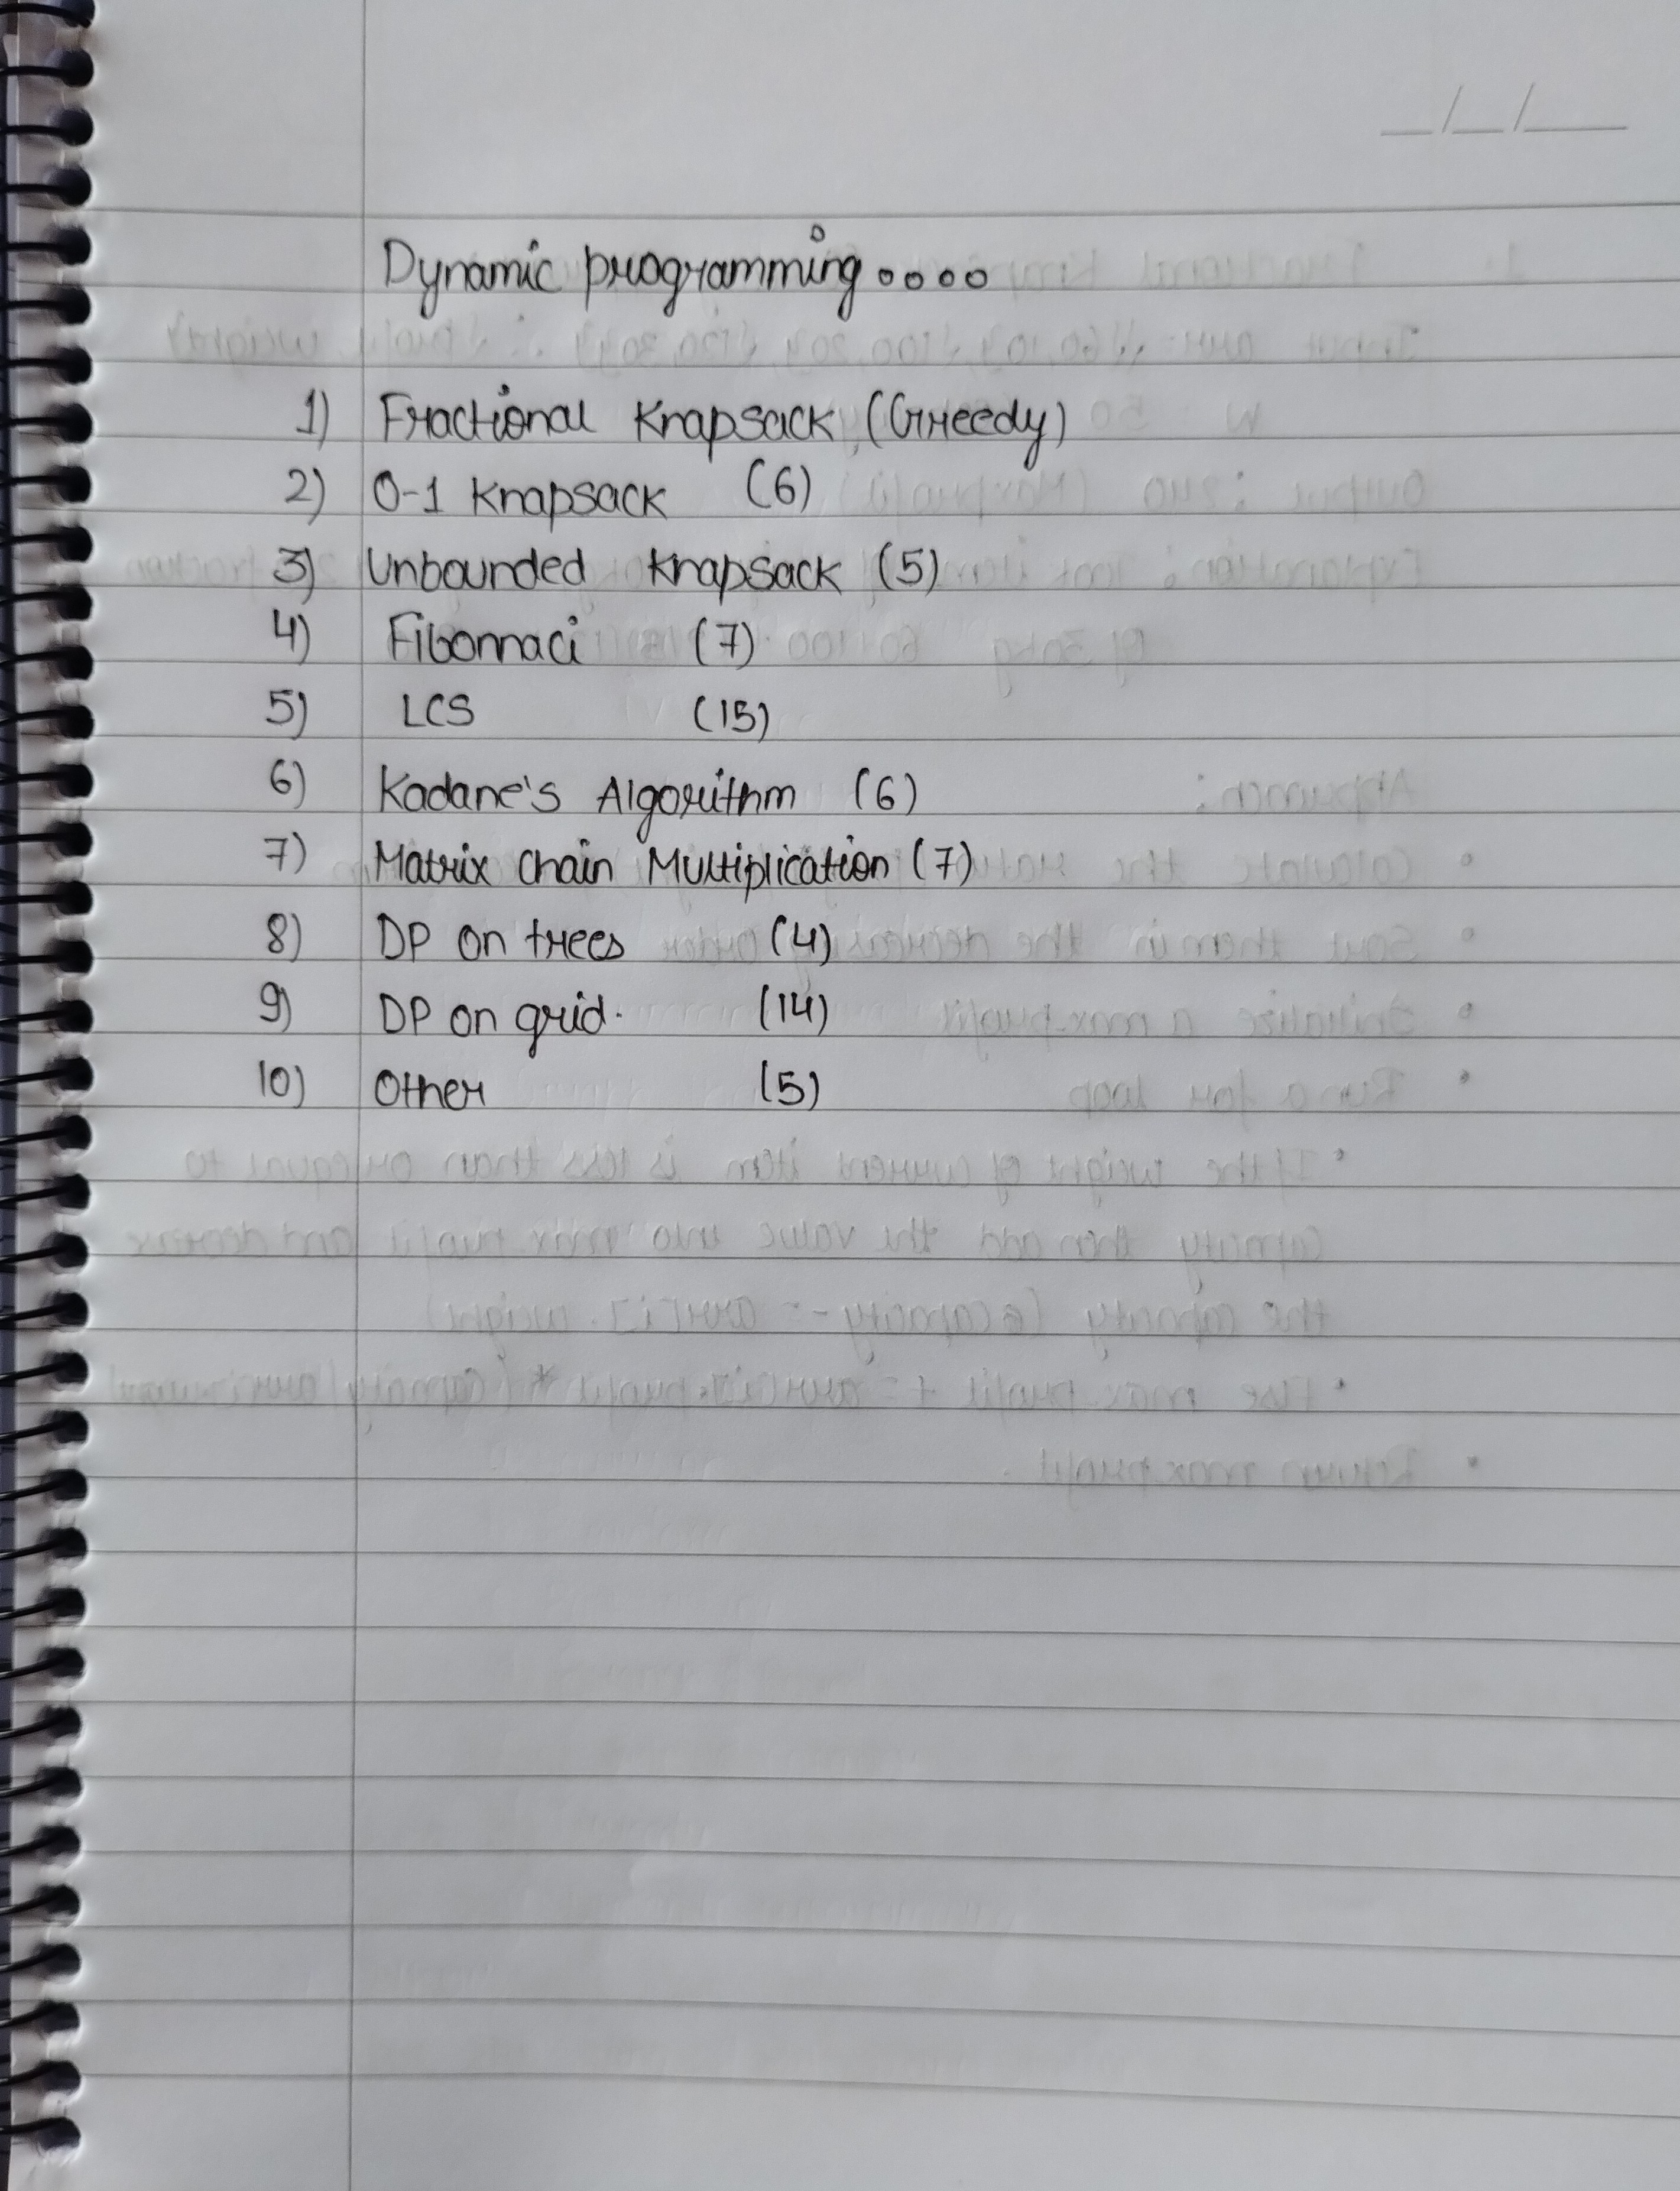 Dynamic programming....
1) Fractional Knapsack (Greedy)
2) 0-1 Knapsack (6)
3) Unbounded Knapsack (5)
4) Fibonnaci (7)
5) LCS (15)
6) Kadane's Algorithm (6)
7) Matrix Chain Multiplication (7)
8) DP on trees (4)
9) DP on grid. (14)
10) Other (5)